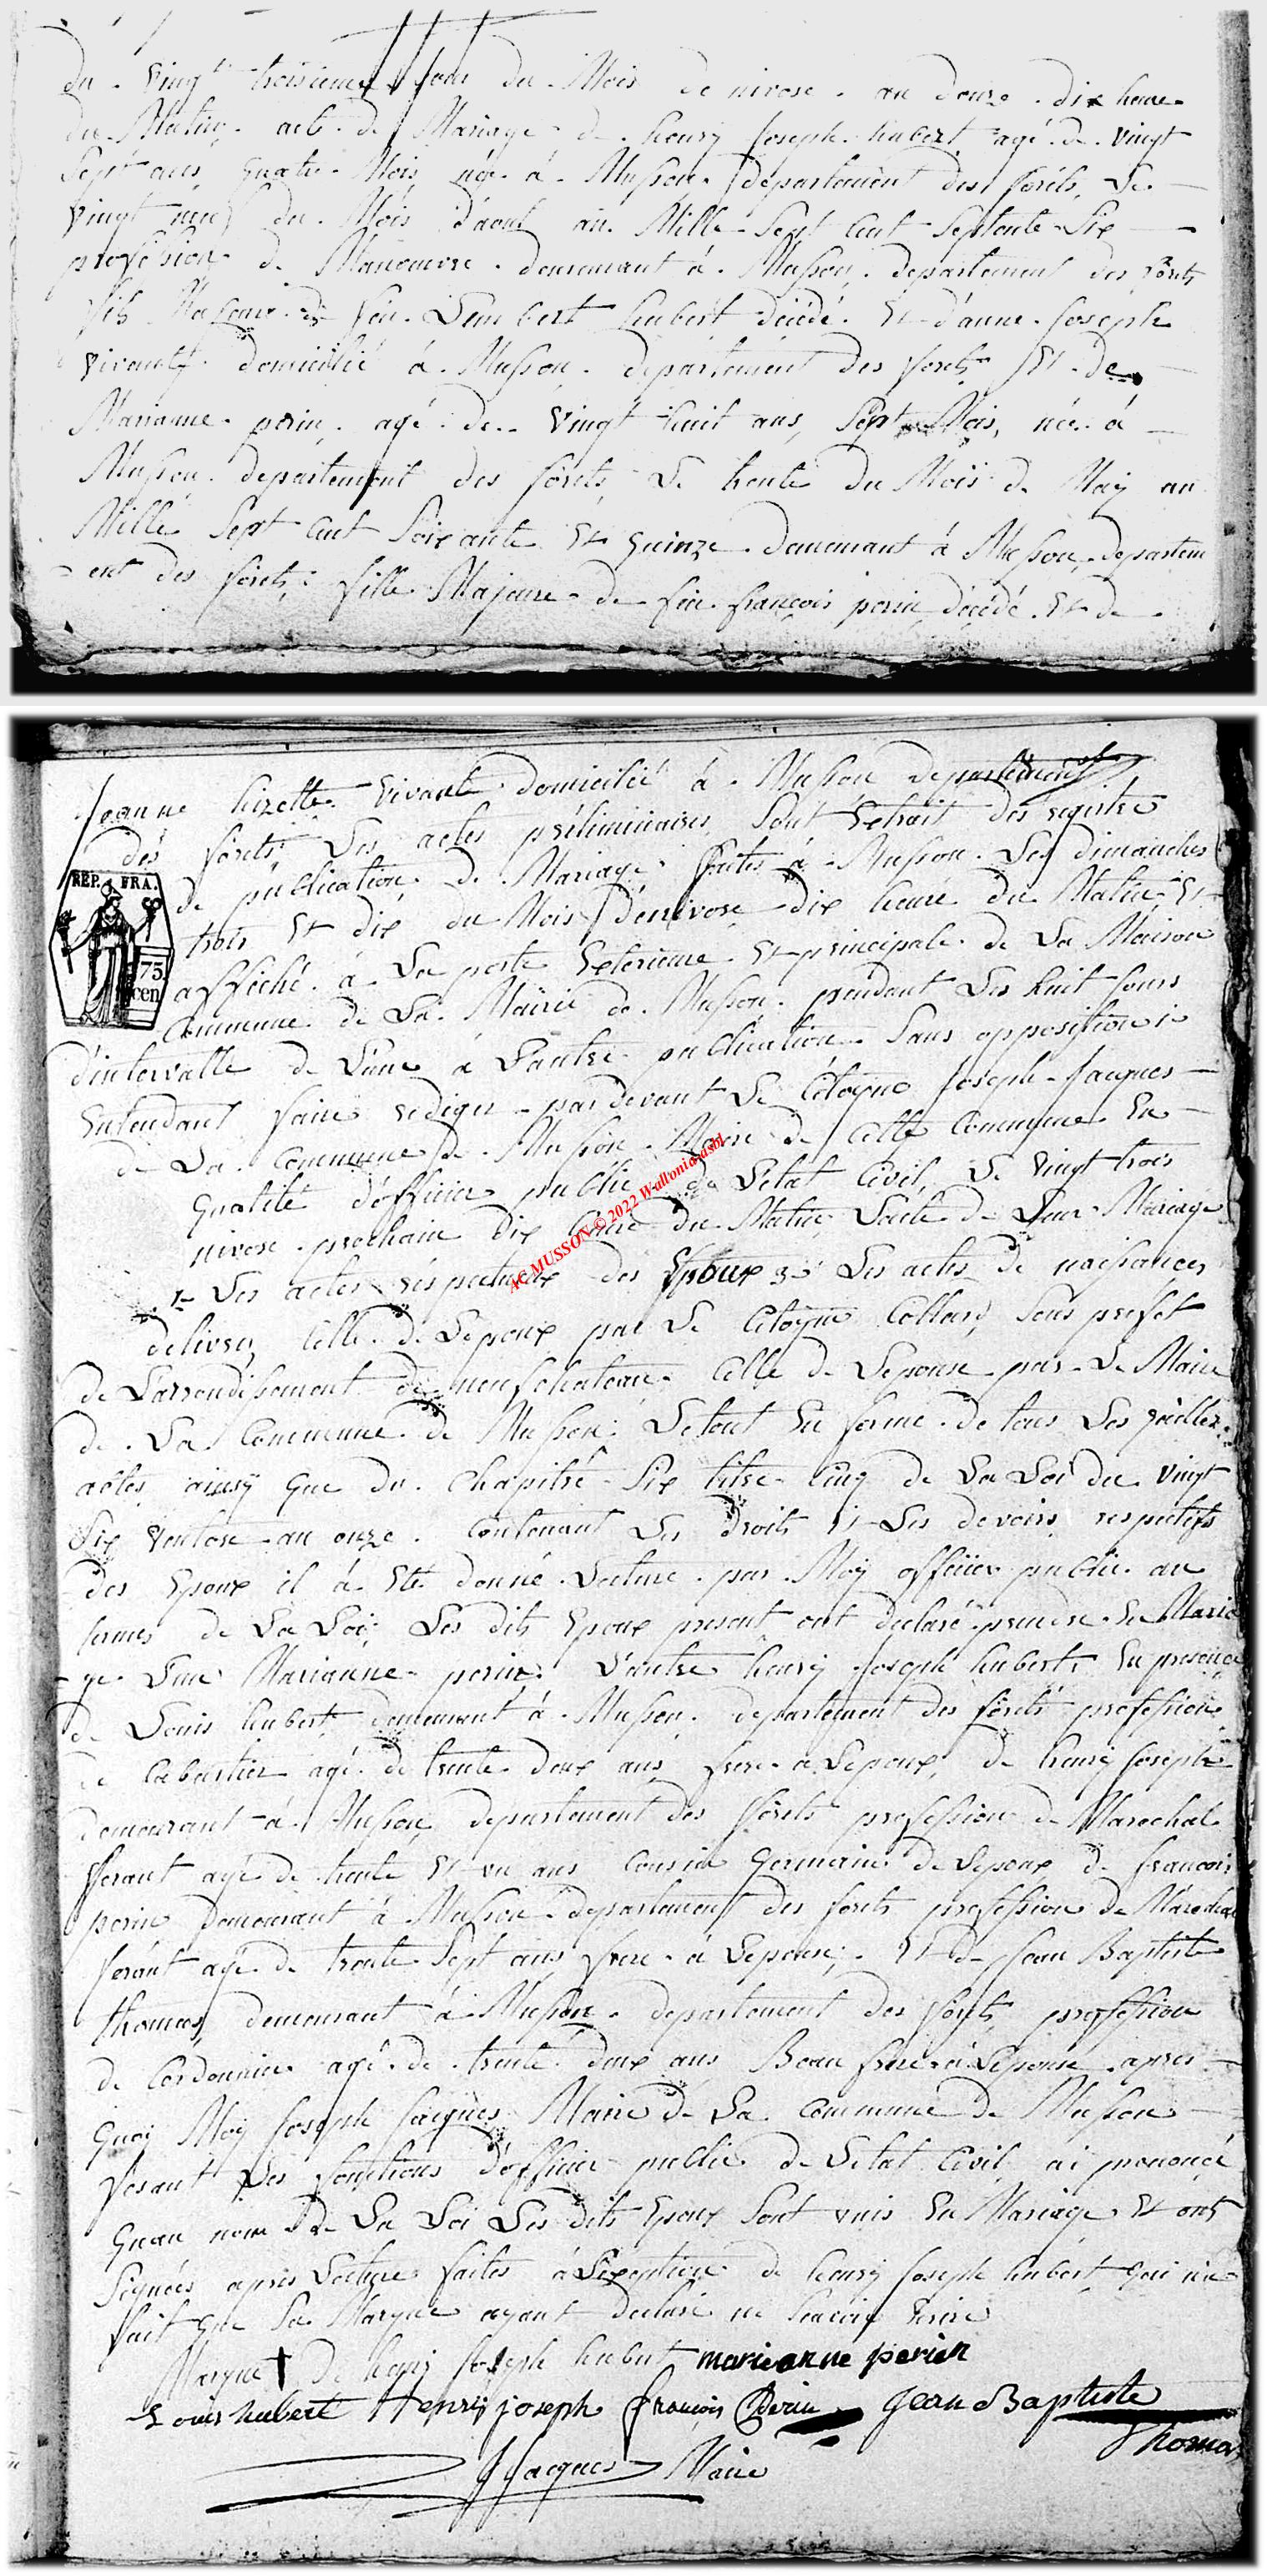 du vingt troisieme Jour du Mois de nivose an douze dix heure
du Matin acte de Mariage de henry Joseph hubert agé de vingt
Sept ans quatre Mois né à Musson departement des forêts Le
vingt neuf du Mois d'aout an Mille Sept Cent Septente Six
profession de Manoeuvre demeurant à Musson departement des forêts
fils Majeur de feu Lembert hubert décédé Et d'anne Joseph
vivante domicilié à Musson departement des forets Et de
Marianne perin agé de vingt huit ans, Sept Mois, née à
Musson departement des forêts Le trente du Mois de May an
Mille Sept Cent Soixante Et quinze demeurant à Musson departem
- ent des forêts, fille Majeure de feu françois perin décédé Et de
Jeanne lizette vivante domicilié à Musson departement
des forêts, Les actes préliminaires Sont Extrait des registre
de publication de Mariage faites à Musson Les dimanches
REP. FRA.
75
cen
trois Et dix du Mois de nivose dix heure du Matin Et
affiché à La porte Exterieure Et principale de La Maison
Commune de La Mairie de Musson pendant Les huit Jours
d'intervalle de L'une à L'autre publication Sans opposition
Entendant faire rediger pardevant Le Citoyne Joseph Jacques
de La Commune de Musson Maire de Cette Commune En
qualité d'officier public de L'etat Civil, Le vingt trois
nivose prochain dix heure du Matin L'acte de Leur Mariage
AC MUSSON © 2022 Wallonia asbl
1- Les actes respectueux des Epoux 3- Les actes de naissances
delivrez Celle de L'epoux par Le Citoyne Collard Sous prefet
de L'arrondissement de neufchateau Celle de L'epouse par Le Maire
de La Commune de Musson Le tout En forme de tous Les
actes ainsy que du Chapitre Six titre Cinq de La Loi du vingt
Six ventose an onze Contenant Les droits Et Les devoirs respectifs
des Epoux il à Eté donné Lecture par Moy officier public au
termes de La Loi, Les dits Epoux present ont declaré prendre En Maria
- ge L'une Marianne perin L'autre henry Joseph hubert, En presence
de Louis hubert demeurant à Musson departement des forêts profession
de Cabartier agé de trente deux ans frere à L'epoux, de henry Joseph
demeurant à Musson departement des forêts profession de Marechal
ferant agé de trente Et un ans Cousin Germain de L'epoux de francois
perin demeurant à Musson departement des forêts profession de Marechal
ferant agé de trente Sept ans frere à L'epouse, Et de Jean Baptiste
thomas, demeurant à Musson departement des forêts profession
de Cordonnier agé de trente deux ans Beau frere à L'epouse apres
quoi Moy Joseph Jacques Maire de La Commune de Musson
fesant Les fonctions d'officier public de L'etat Civil, ai prononcé
quau nom de La Loi Les dits Epoux Sont unis En Mariage Et ont
Signées apres Lecture faites à L'exception de henry Joseph hubert qui n'a
fait que Sa Marque ayant declaré ne Scavoir Ecrire
Marque † De henry Joseph hubert marieanne perien
Louis hubert Henry joseph françois Perin Jean Baptiste
Thomas
JJacques Maire